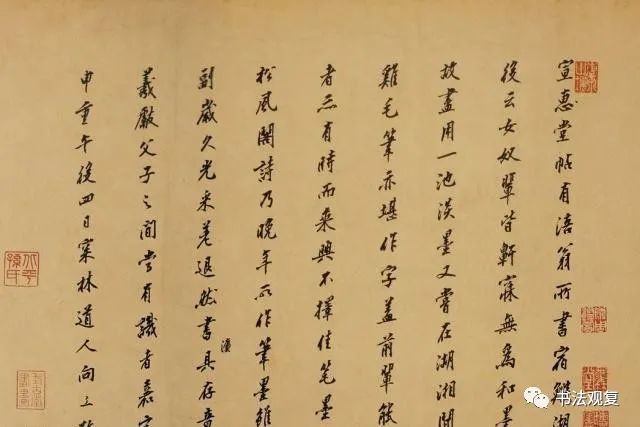 宣惠堂帖有涪翁所書宿鯉湖
後云女奴輩皆鼾寐無為和墨
故盡用一池淡墨又嘗在湖湘間
雞毛筆亦堪作字蓋前輩能
者亦有時而乘興不擇佳筆墨
松風閣詩乃晚年所作筆墨雖
剅歲久光采差退然書具存音
漢
羲獻父子之間嘗有識者嘉定
申重午後四日寀林道人向立
书法观复